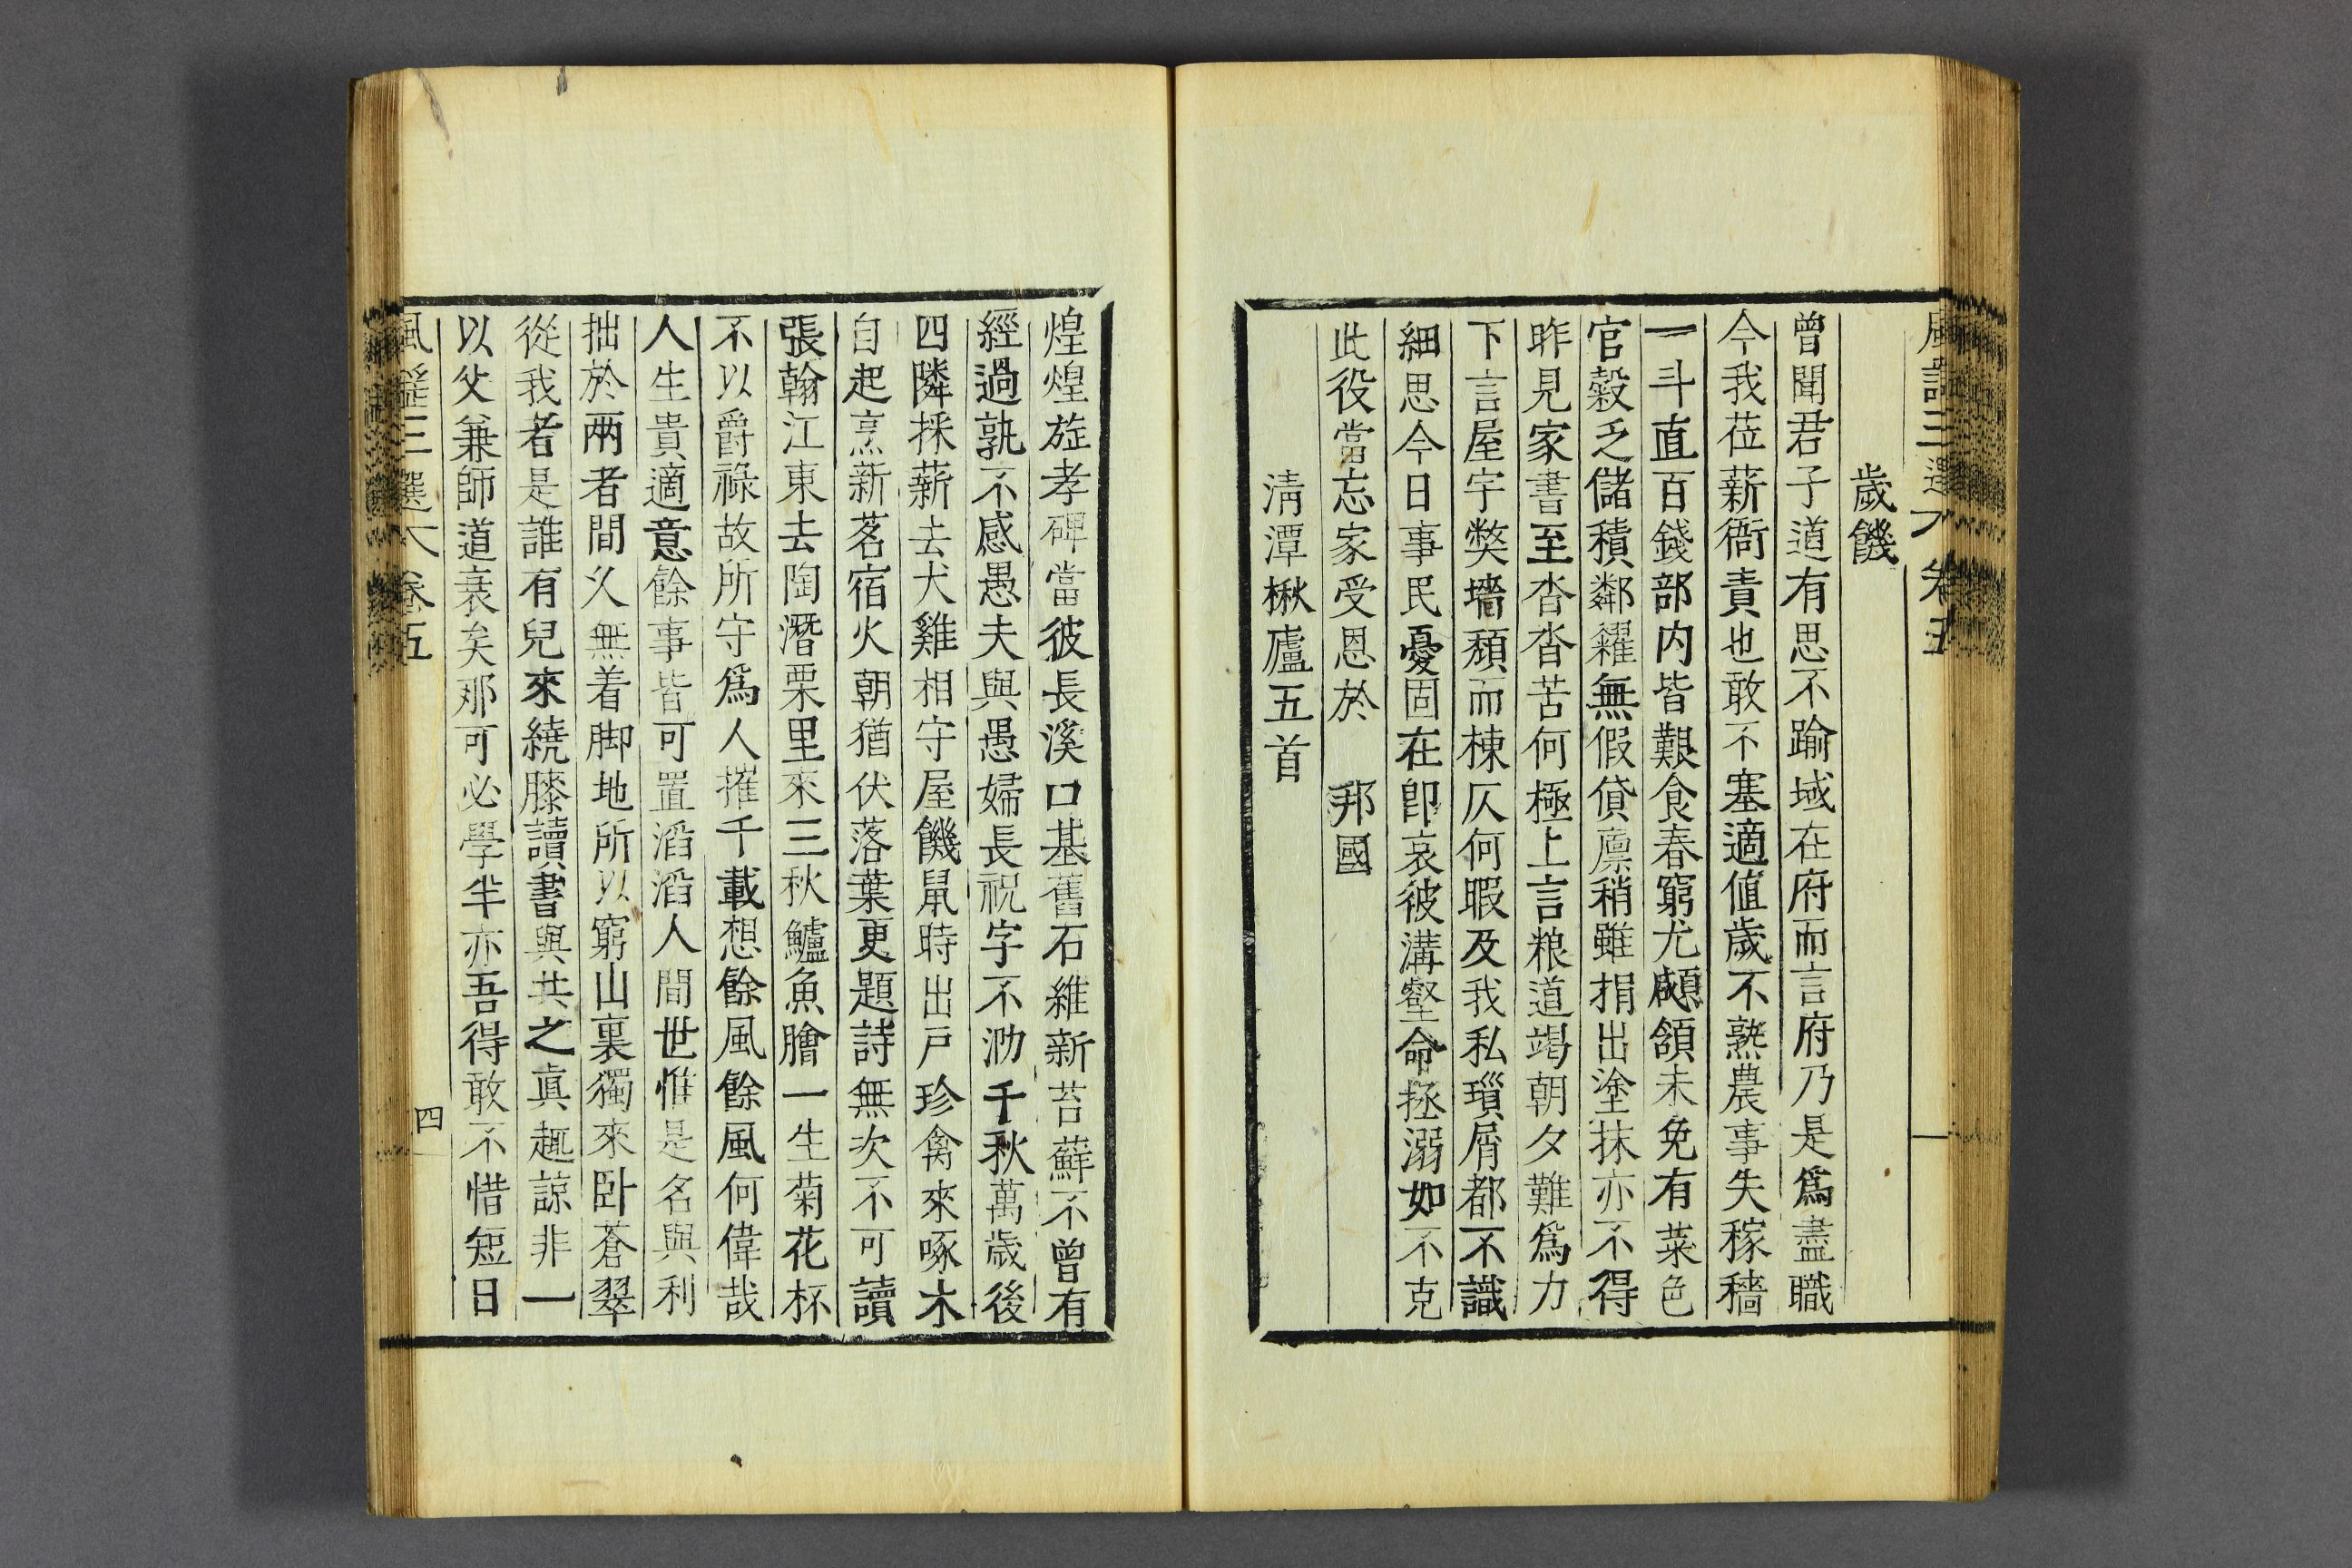 歲饑
曾聞君子道有思不踰域在府而言府乃是爲盡職
今我莅薪衙責也敢不塞適值歲不熟農事失稼穡
一斗直百錢部内皆艱食春窮尤頗頷未免有菜色
官穀乏儲積鄰糴無假貸廩稍雖捐出塗抹亦不得
昨見家書至杳杳苦何極上言粮道竭朝夕難爲力
下言屋宇獘墻頹而棟仄何暇及我私瑣屑都不識
細思今日事民憂固在卽哀彼溝壑命拯溺如不克
此役當忘家受恩於　邦國
淸潭楸廬五首
煌煌旌孝碑當彼長溪口基舊石維新苔蘚不曾有
經過孰不感愚夫與愚婦長祝字不泐千秋萬歲後
四隣採薪去犬雞相守屋饑鼠時出戶珍禽來啄木
自起烹新茗宿火朝猶伏落葉更題詩無次不可讀
張翰江東去陶潛栗里來三秋鱸魚膾一生菊花杯
不以爵祿故所守爲人摧千載想餘風餘風何偉哉
人生貴適意餘事皆可置滔滔人間世惟是名與利
拙於兩者間乂無着脚地所以窮山裏獨來卧蒼翠
從我者是誰有兒來繞膝讀書與共之眞趣諒非一
以父兼師道衰矣那可必學半亦吾得敢不惜短日
風謠三選 卷五
四